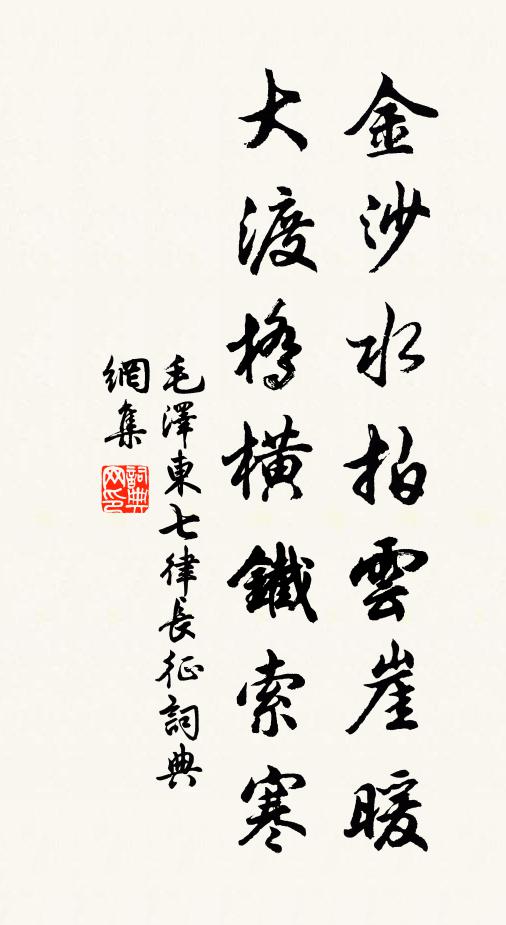 金沙水拍雲崖暖
大渡橋橫鐵索寒
毛澤東七律長征詞典
網集
詞典网印